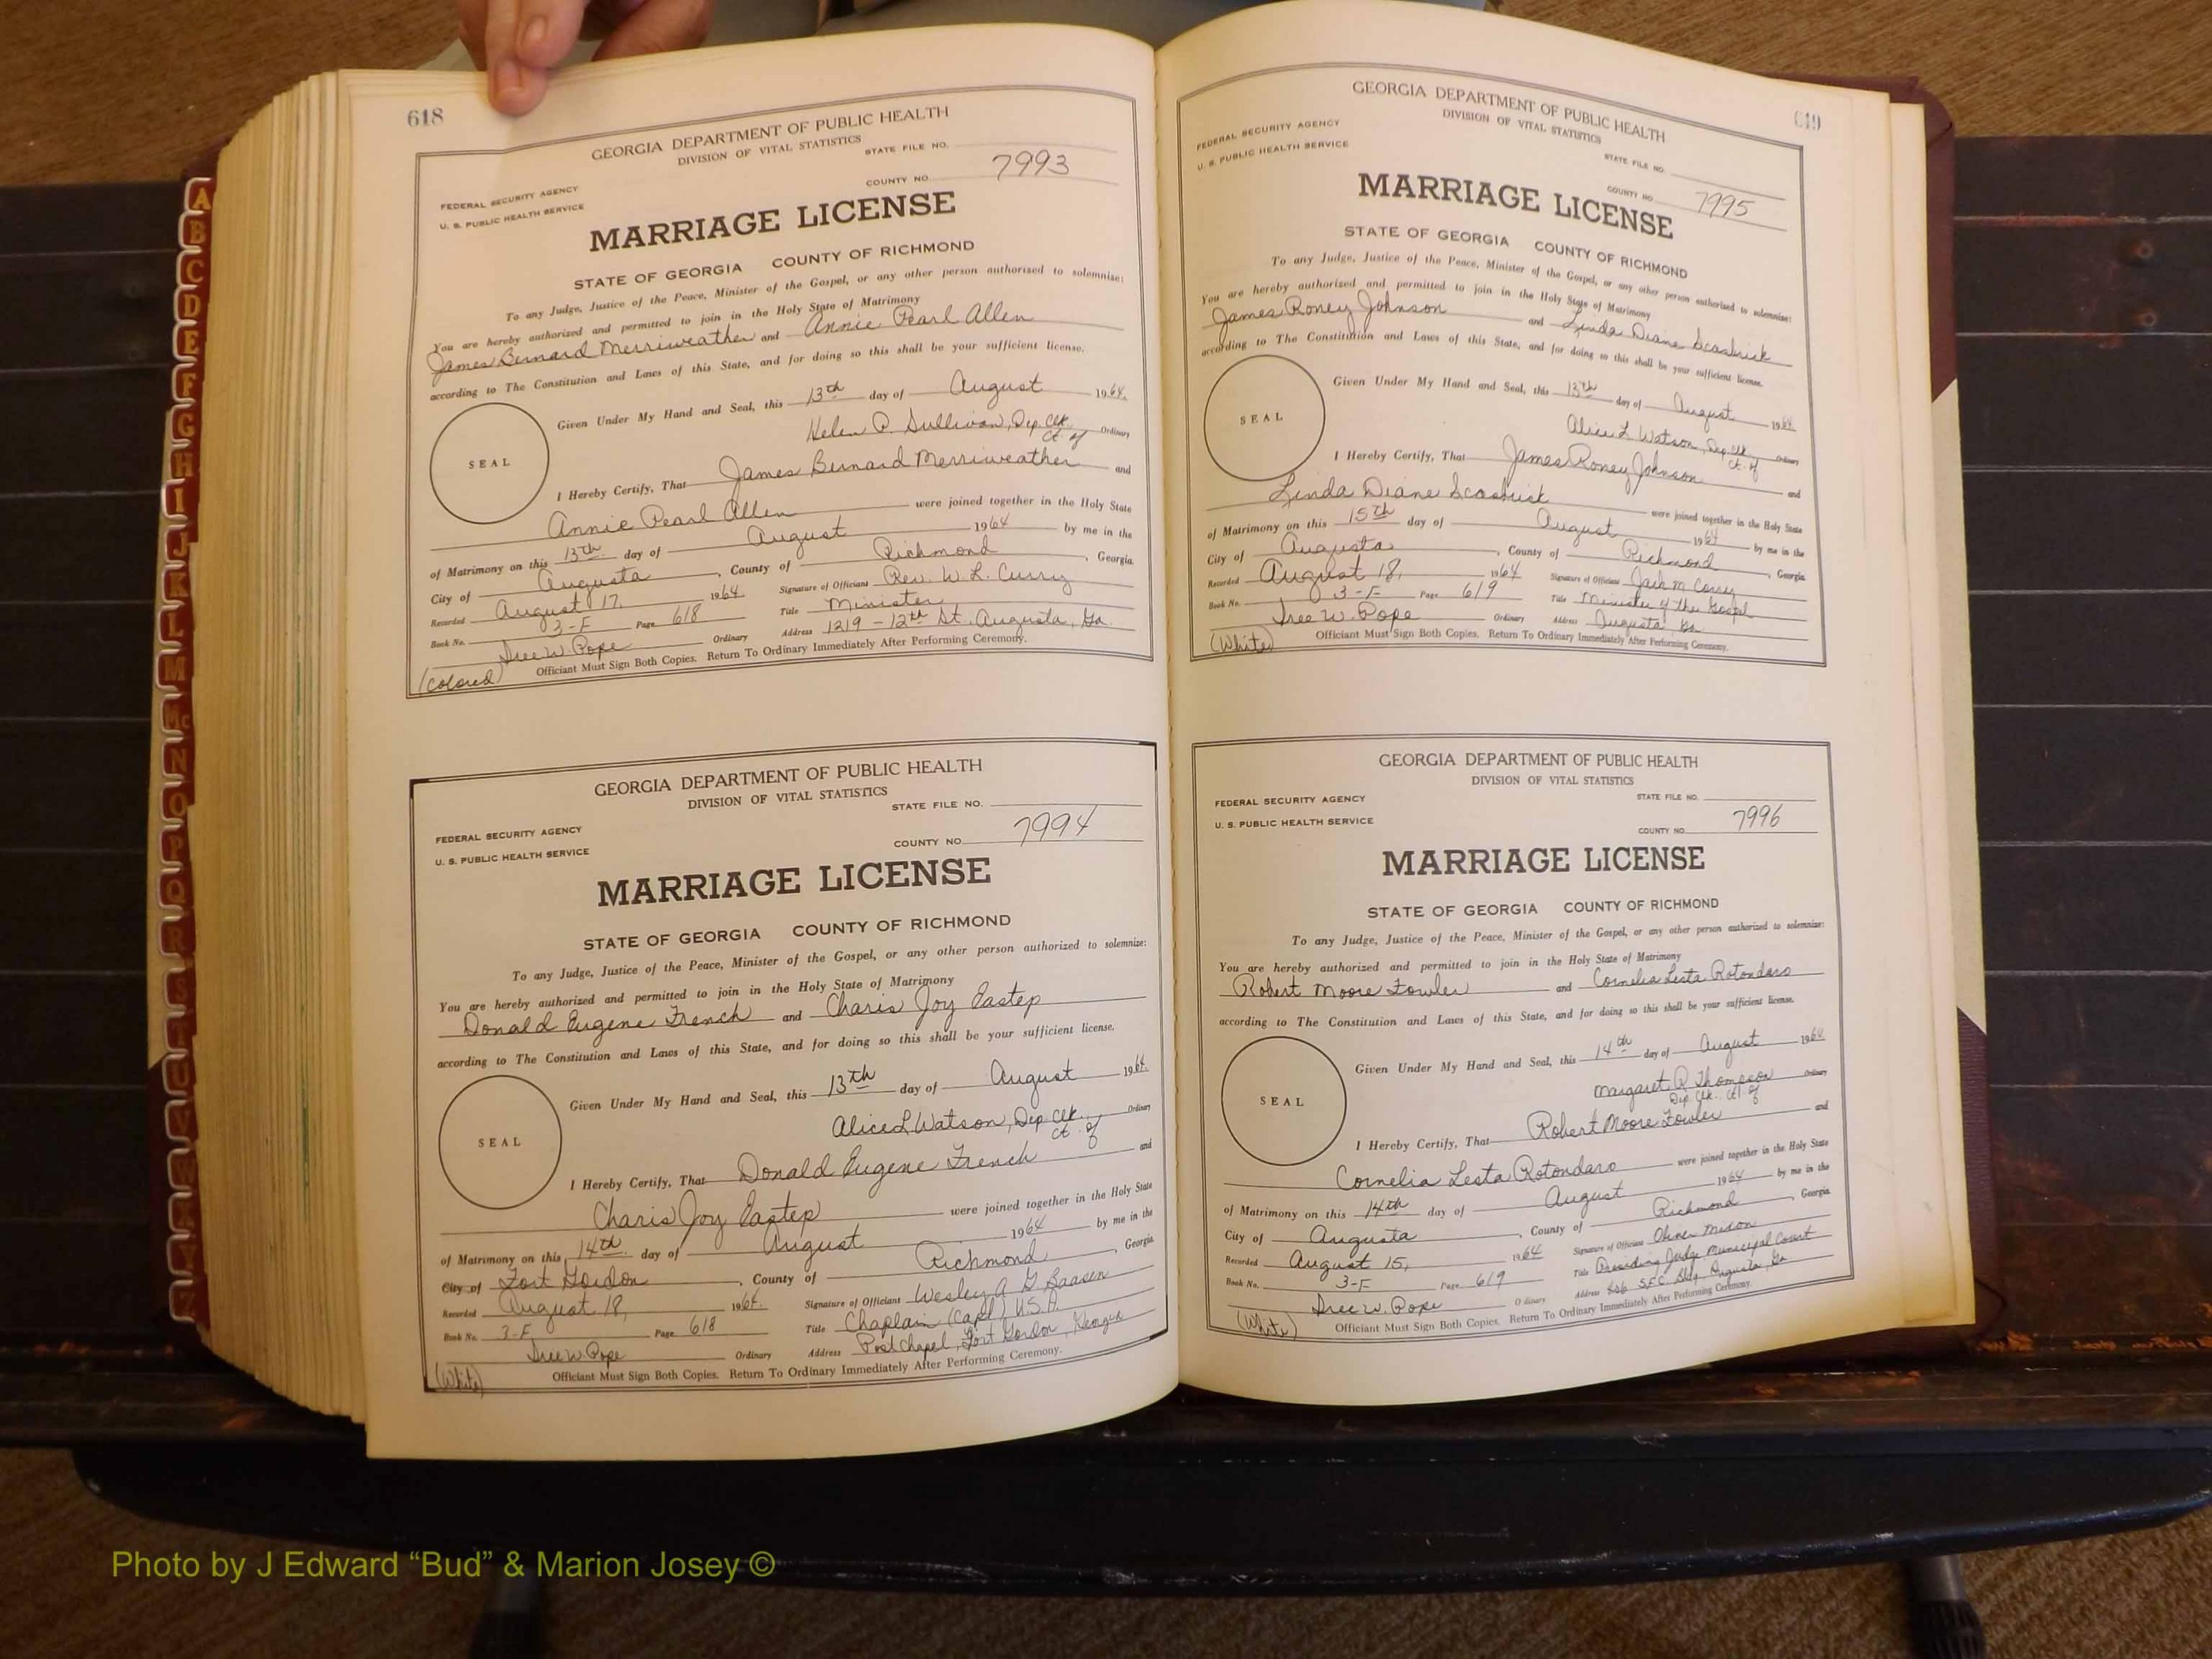 A
B
C
D
E
F
G
H
I
J
K
L
M
Mc
N
O
P
Q
R
S
T
U
V
W
618
GEORGIA DEPARTMENT OF PUBLIC HEALTH
DIVISION OF VITAL STATISTICS
STATE FILE NO.
FEDERAL SECURITY AGENCY
U. S. PUBLIC HEALTH SERVICE
COUNTY NO. 7993
MARRIAGE LICENSE
STATE OF GEORGIA COUNTY OF RICHMOND
To any Judge, Justice of the Peace, Minister of the Gospel, or any other person authorized to solemnize:
You are hereby authorized and permitted to join in the Holy State of Matrimony
James Bernard Merriweather and Annie Pearl Allen
according to The Constitution and Laws of this State, and for doing so this shall be your sufficient license.
Given Under My Hand and Seal, this 13th day of August 1964.
Helen P. Sullivan, Dep. Clk. Ct. of Ordinary
SEAL
I Hereby Certify, That James Bernard Merriweather and
Annie Pearl Allen were joined together in the Holy State
of Matrimony on this 13th day of August 1964 by me in the
City of Augusta, County of Richmond, Georgia.
Recorded August 17, 1964. Signature of Officiant Rev. W. L. Curry
Book No. 3-F Page 618 Title Minister
Iree W. Pope Ordinary Address 1219 - 12th St. Augusta, Ga.
(Colored) Officiant Must Sign Both Copies. Return To Ordinary Immediately After Performing Ceremony.
GEORGIA DEPARTMENT OF PUBLIC HEALTH
DIVISION OF VITAL STATISTICS
STATE FILE NO.
FEDERAL SECURITY AGENCY
U. S. PUBLIC HEALTH SERVICE
COUNTY NO. 7994
MARRIAGE LICENSE
STATE OF GEORGIA COUNTY OF RICHMOND
To any Judge, Justice of the Peace, Minister of the Gospel, or any other person authorized to solemnize:
You are hereby authorized and permitted to join in the Holy State of Matrimony
Donald Eugene French and Charis Joy Eastep
according to The Constitution and Laws of this State, and for doing so this shall be your sufficient license.
Given Under My Hand and Seal, this 13th day of August 1964.
Alice L Watson, Dep. Clk. Ct. of Ordinary
SEAL
I Hereby Certify, That Donald Eugene French and
Charis Joy Eastep were joined together in the Holy State
of Matrimony on this 14th day of August 1964 by me in the
City of Fort Gordon, County of Richmond, Georgia.
Recorded August 18, 1964. Signature of Officiant Wesley A G Baasen
Book No. 3-F Page 618 Title Chaplain (Capt) U.S.A.
Iree W Pope Ordinary Address Post Chapel, Fort Gordon, Georgia
(White) Officiant Must Sign Both Copies. Return To Ordinary Immediately After Performing Ceremony.
619
GEORGIA DEPARTMENT OF PUBLIC HEALTH
DIVISION OF VITAL STATISTICS
FEDERAL SECURITY AGENCY
U. S. PUBLIC HEALTH SERVICE
STATE FILE NO.
COUNTY NO. 7995
MARRIAGE LICENSE
STATE OF GEORGIA COUNTY OF RICHMOND
To any Judge, Justice of the Peace, Minister of the Gospel, or any other person authorized to solemnize:
You are hereby authorized and permitted to join in the Holy State of Matrimony
James Roney Johnson and Linda Diane
according to The Constitution and Laws of this State, and for doing so this shall be your sufficient license.
Given Under My Hand and Seal, this 13th day of August 1964
Alice L Watson, Dep. Clk. Ct. of Ordinary
SEAL
I Hereby Certify, That James Roney Johnson and
Linda Diane were joined together in the Holy State
of Matrimony on this 15th day of August 1964 by me in the
City of Augusta, County of Richmond, Georgia
Recorded August 18, 1964 Signature of Officiant Jack M
Book No. 3-F Page 619 Title Minister of the Gospel
Iree W. Pope Ordinary Address Augusta, Ga.
(White) Officiant Must Sign Both Copies. Return To Ordinary Immediately After Performing Ceremony.
GEORGIA DEPARTMENT OF PUBLIC HEALTH
DIVISION OF VITAL STATISTICS
STATE FILE NO.
FEDERAL SECURITY AGENCY
U. S. PUBLIC HEALTH SERVICE
COUNTY NO. 7996
MARRIAGE LICENSE
STATE OF GEORGIA COUNTY OF RICHMOND
To any Judge, Justice of the Peace, Minister of the Gospel, or any other person authorized to solemnize:
You are hereby authorized and permitted to join in the Holy State of Matrimony
Robert Moore Fowler and Cornelia Lesta Rotondaro
according to The Constitution and Laws of this State, and for doing so this shall be your sufficient license.
Given Under My Hand and Seal, this 14th day of August 1964.
Margaret R Thompson Dep. Clk. Ct. of Ordinary
SEAL
I Hereby Certify, That Robert Moore Fowler and
Cornelia Lesta Rotondaro were joined together in the Holy State
of Matrimony on this 14th day of August 1964 by me in the
City of Augusta, County of Richmond, Georgia
Recorded August 15, 1964 Signature of Officiant Oliver Mixon
Book No. 3-F Page 619 Title Presiding Judge Municipal Court
Iree W. Pope Ordinary Address SFC Bldg. Augusta, Ga
(White) Officiant Must Sign Both Copies. Return To Ordinary Immediately After Performing Ceremony.
Photo by J Edward “Bud” & Marion Josey ©